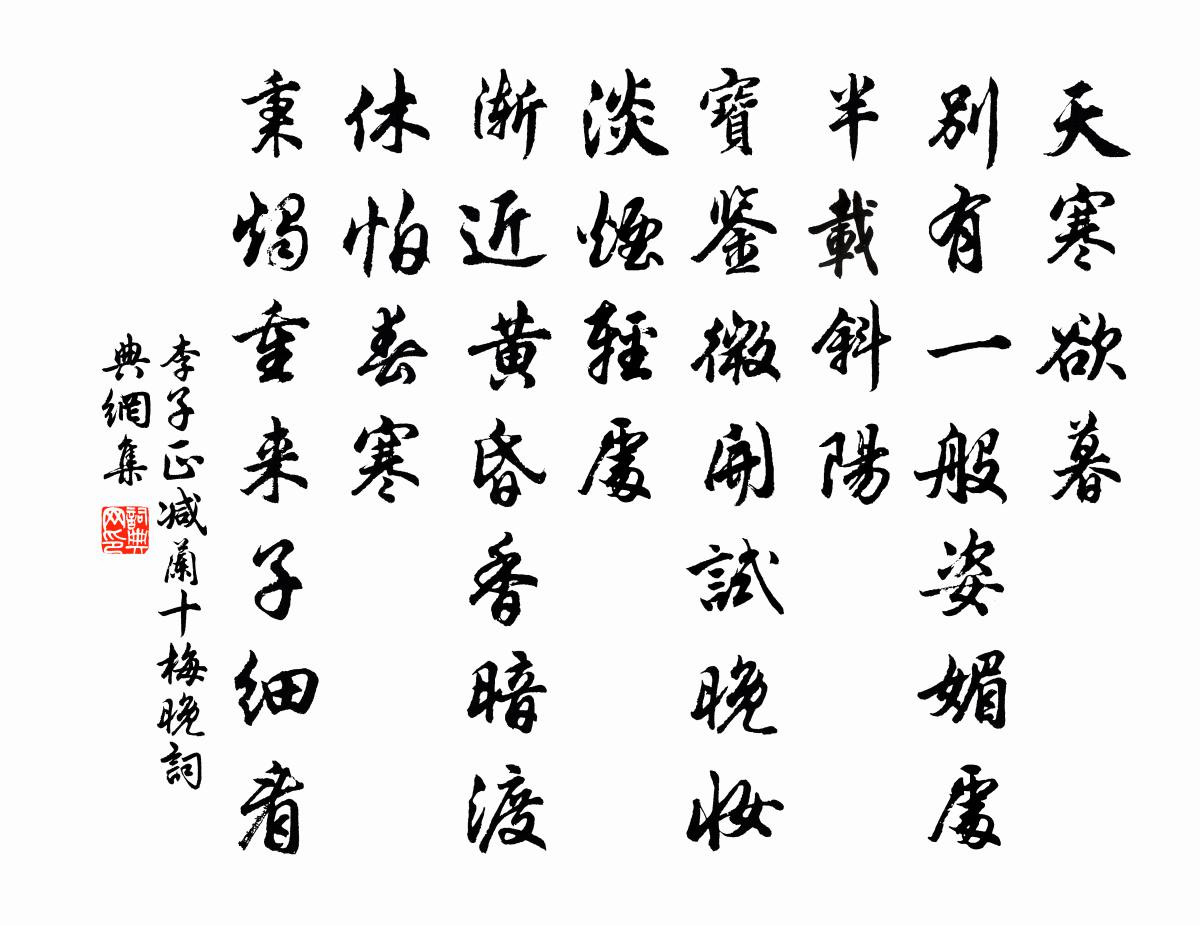 天寒欲暮
別有一般姿媚處
半載斜陽
寶鉴微開試晚妝
淡煙輕處
漸近黄昏香暗渡
休怕春寒
秉燭重来子細看
李子正減蘭十梅晚詞
典網集
詞典网印